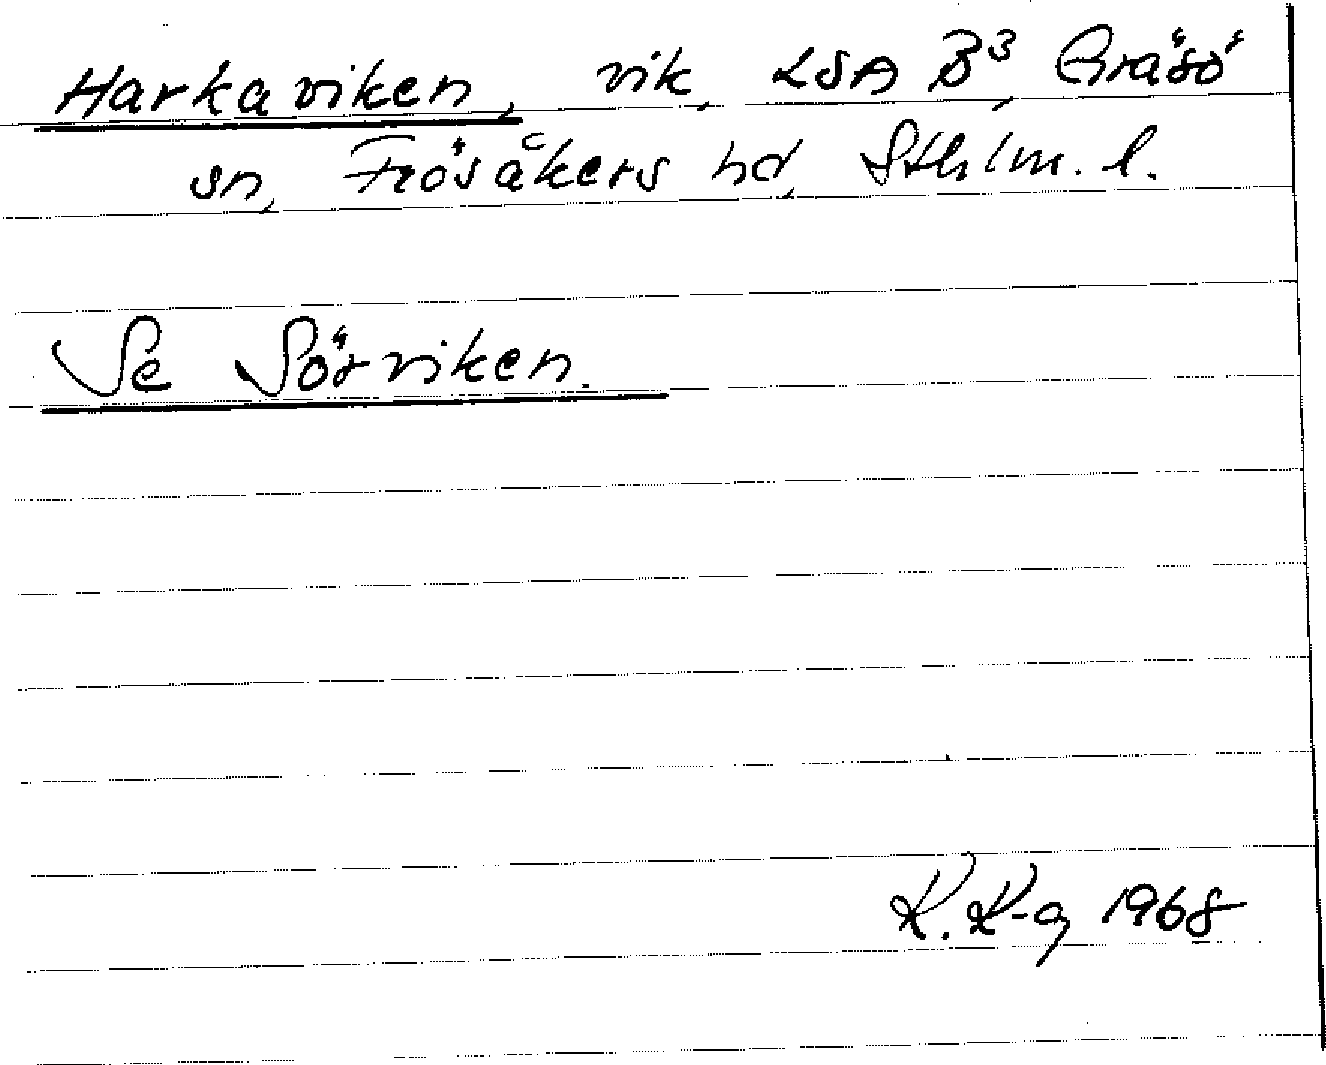 Harkaviken, vik, LSA B³, Gräsö
sn, Frösåkers hd, Sthlm. l.
Se Sörviken.
K. K-g 1968